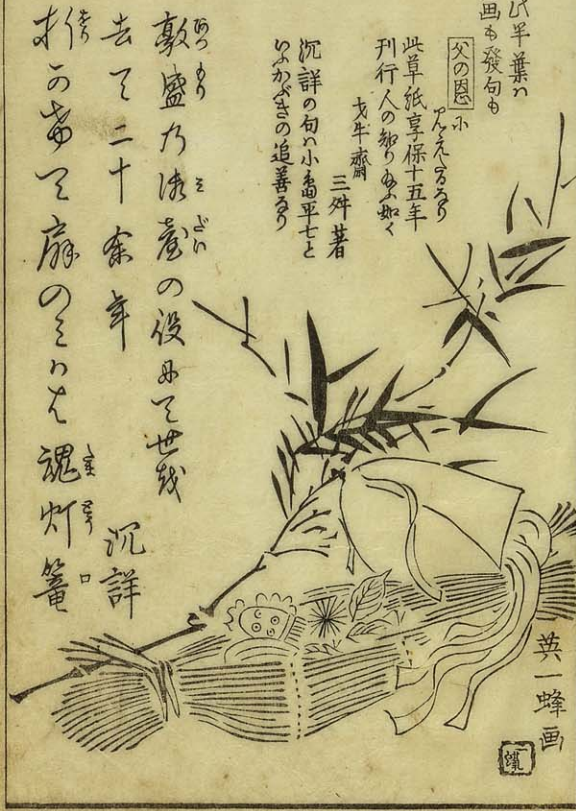 此半葉ハ
画も発句も
父の恩に
見えたるなり
此草紙享保十五年
刊行人の知りたる如く
戈牛齋
三舛著
沉詳の句ハ小畠平七と
いふかぶきの追善なり
敦盛乃御臺の役者にて世越
去て二十余年
沉詳
折
て麻の
魂灯篭
英一蜂画